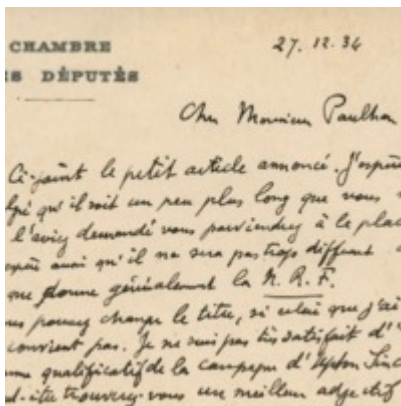 CHAMBRE
ES DÉPUTÉS
27.12.34
Cher Monsieur Paulhan
Ci-joint le petit article annoncé. J'espère
lgré qu'il soit un peu plus long que vous
l'aviez demandé vous parviendrez à le plac
espère aussi qu'il ne sera pas trop différent
que donne généralement la N.R.F.
us pouvez changer le titre, si celui que j'ai
convient pas. Je ne suis pas très satisfait d'
me qualificatif de la campagne d'Upton Sinc
t-être trouverez-vous un meilleur adjectif